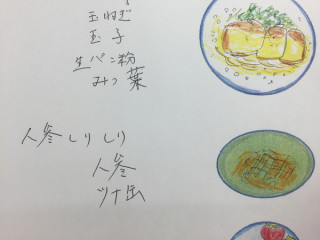 玉ねぎ
玉子
生パン粉
みつ葉
人参しりしり
人参
ツナ缶